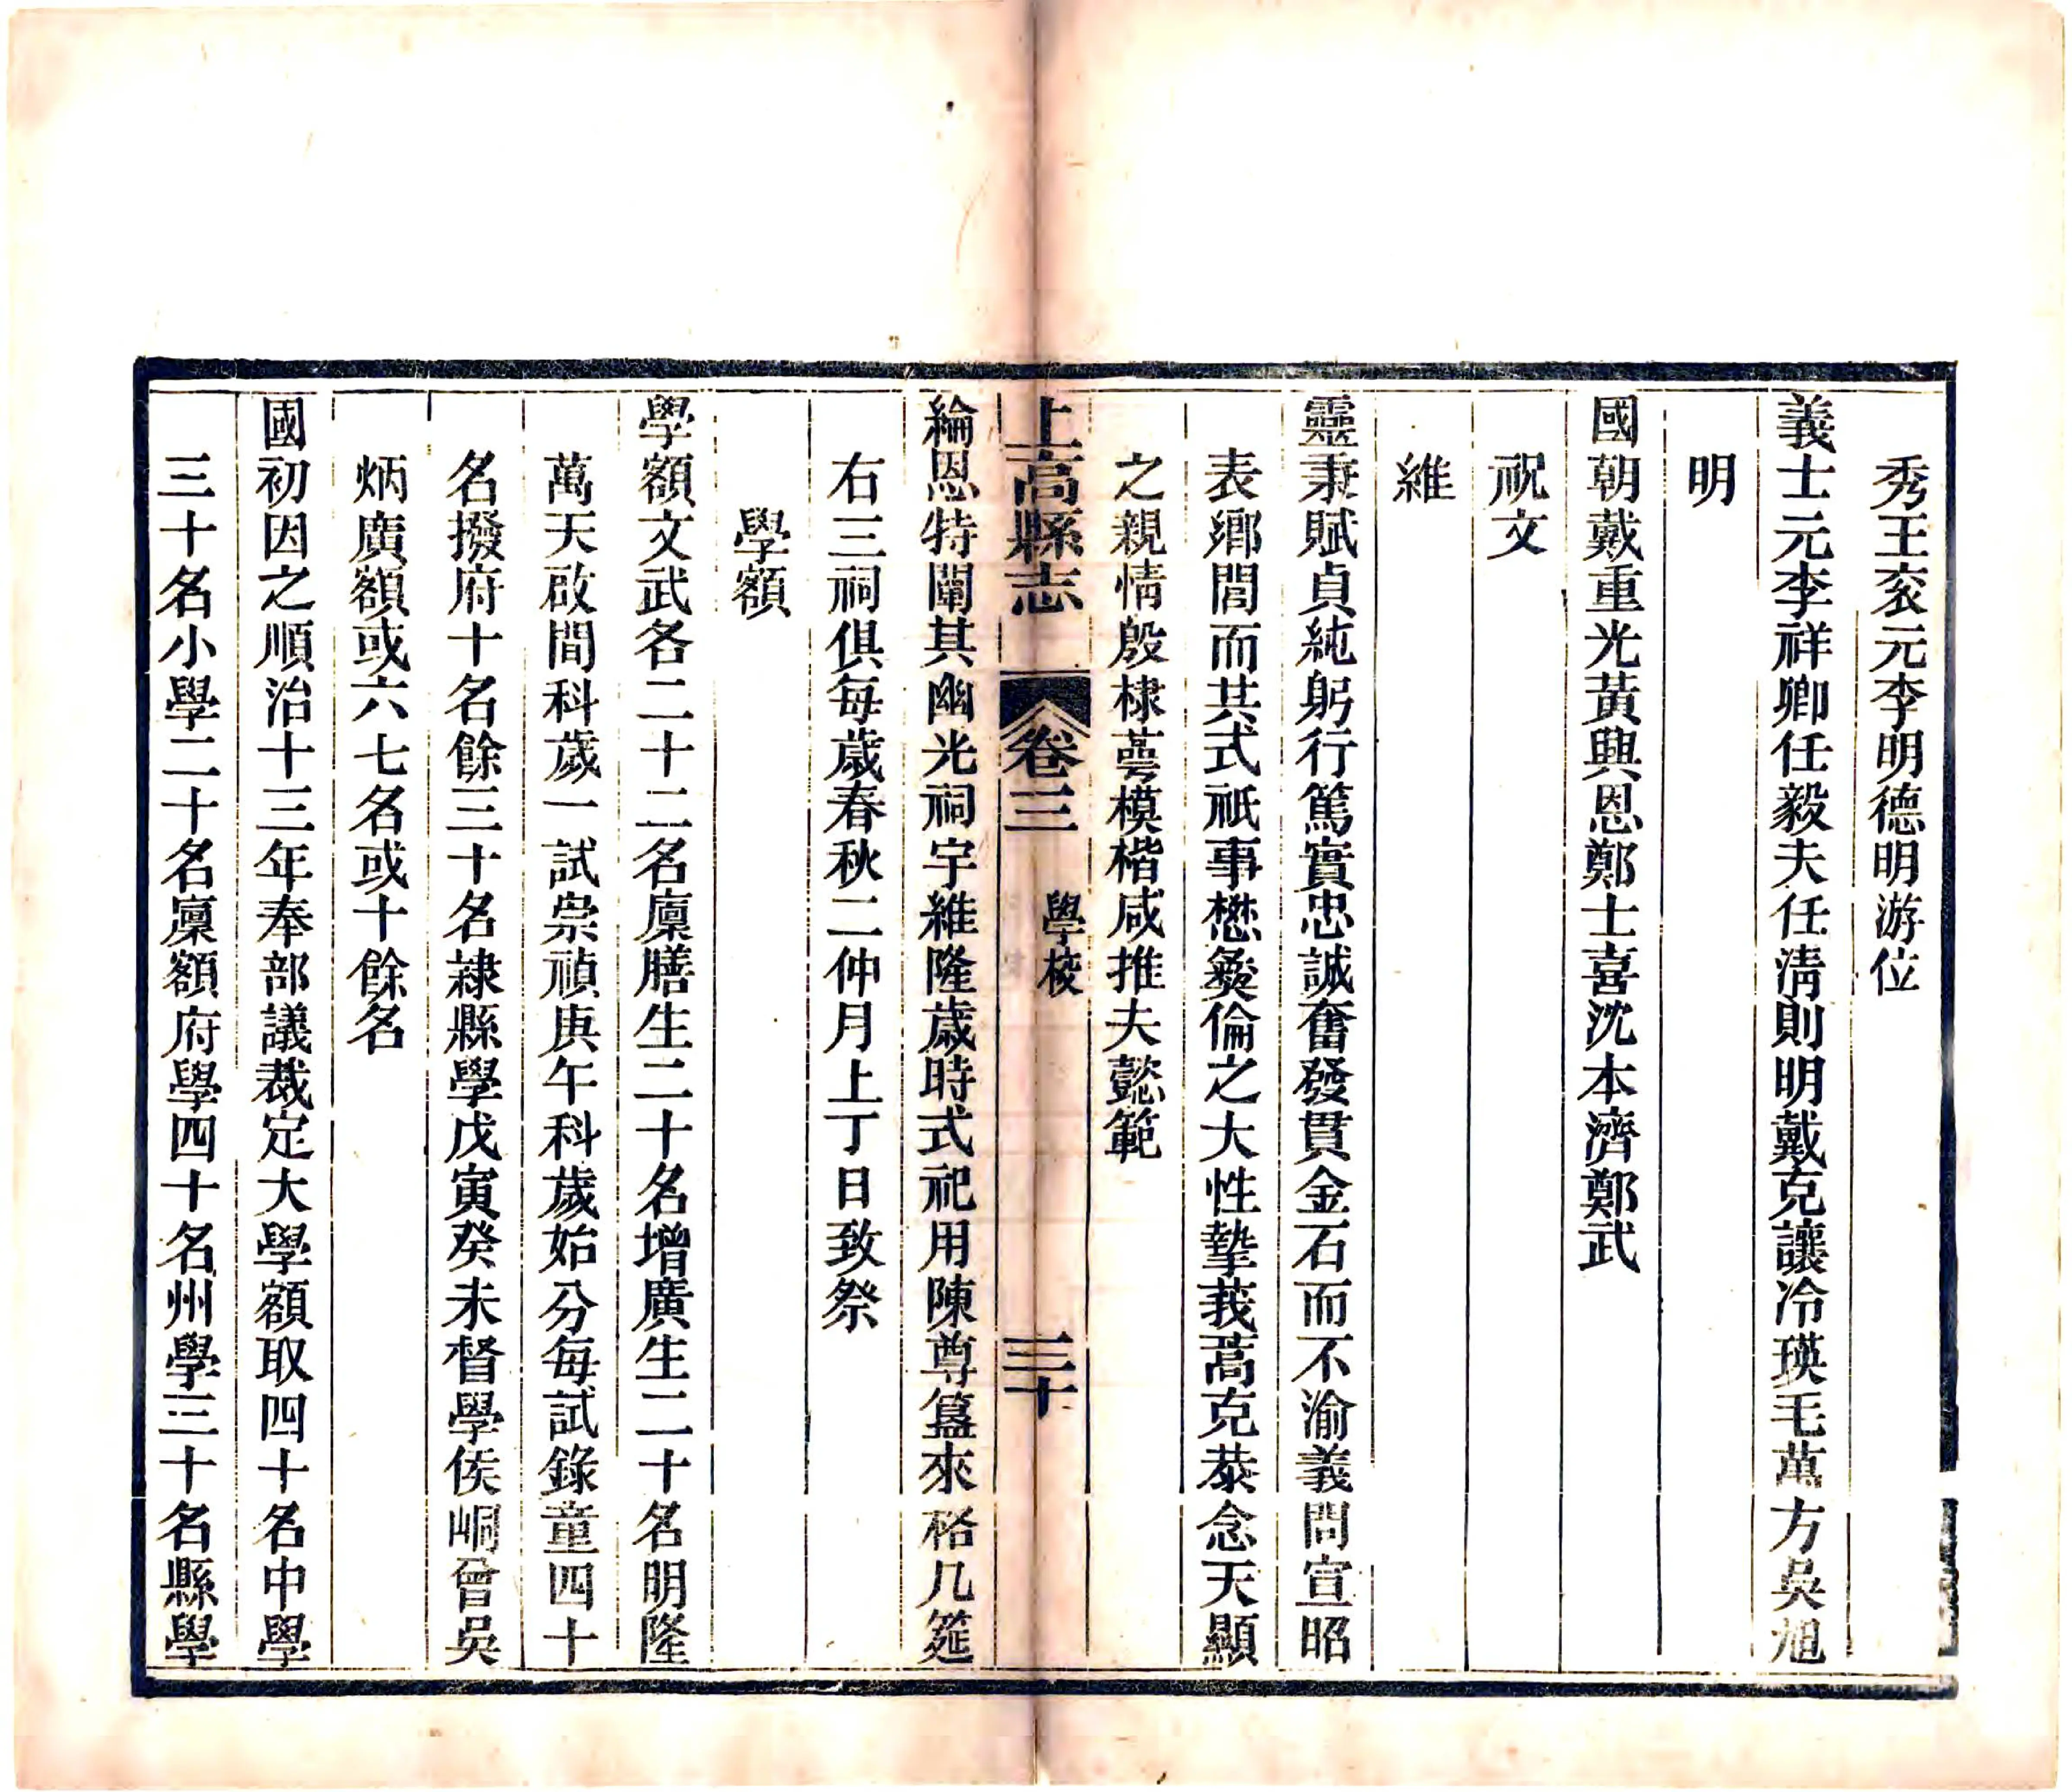 秀王衮元李明德明游位
義士元李祥卿任毅夫任淸則明戴克讓冷瑛毛萬方吳旭
明
國朝戴重光黃興恩鄭士喜沈本濟鄭武
祝文
維
靈秉賦貞純躬行篤實忠誠奮發貫金石而不渝義問宣昭
表鄉閭而共式祇事懋彜倫之大性摯莪蒿克恭念天顯
之親情殷棣萼模楷咸推夫懿範
上高縣志 卷三 學校 三十
綸恩特闡其幽光祠宇維隆歲時式祀用陳尊簋來格几筵
右三祠俱每歲春秋二仲月上丁日致祭
學額
學額文武各二十二名廩膳生二十名增廣生二十名明隆
萬天啟間科歲一試崇禎庚午科歲始分每試錄童四十
名撥府十名餘三十名隷縣學戊寅癸未督學侯峒曾吳
炳廣額或六七名或十餘名
國初因之順治十三年奉部議裁定大學額取四十名中學
三十名小學二十名廩額府學四十名州學三十名縣學